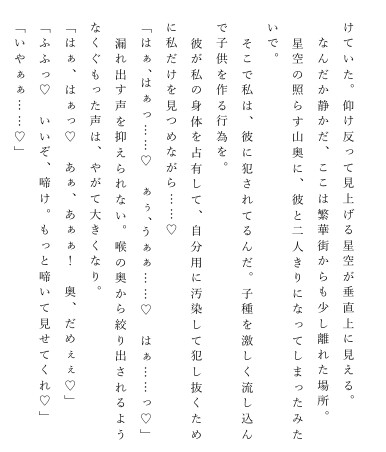 けていた。仰け反って見上げる星空が垂直上に見える。
なんだか静かだ、ここは繁華街からも少し離れた場所。
星空の照らす山奥に、彼と二人きりになってしまったみた
いで。
そこで私は、彼に犯されてるんだ。子種を激しく流し込ん
で子供を作る行為を。
彼が私の身体を占有して、自分用に汚染して犯し抜くため
に私だけを見つめながら……♡
「はぁ、はぁっ……♡　ぁぅ、うぁぁ……♡　はぁ……っ♡」
漏れ出す声を抑えられない。喉の奥から絞り出されるよう
なくぐもった声は、やがて大きくなり。
「はぁ、はぁっ♡　あぁ、あぁぁ！　奥、だめぇぇ♡」
「ふふっ♡　いいぞ、啼け。もっと啼いて見せてくれ♡」
「いやぁぁ……♡」